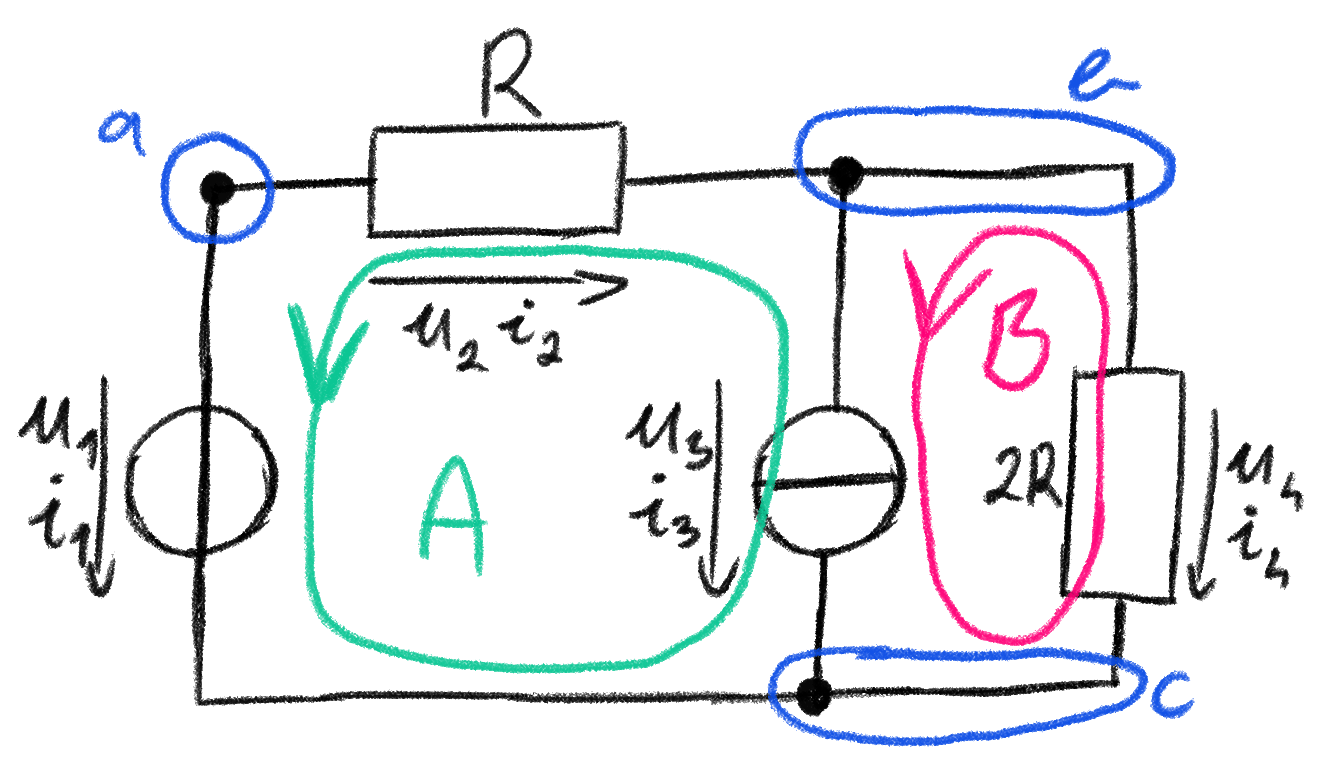 R
a
b
u₂ i₂
u₁
i₁
A
u₃
i₃
B
2R
u₄
i₄
c